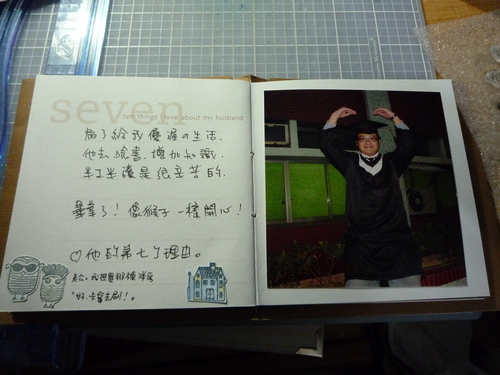 seven
ten things I love about my husband
為了給我優渥の生活,
他去唸書,增加知識,
半工半讀是很辛苦的,
畢業了!像猴子一樣開心!
♡他的第七個理由。